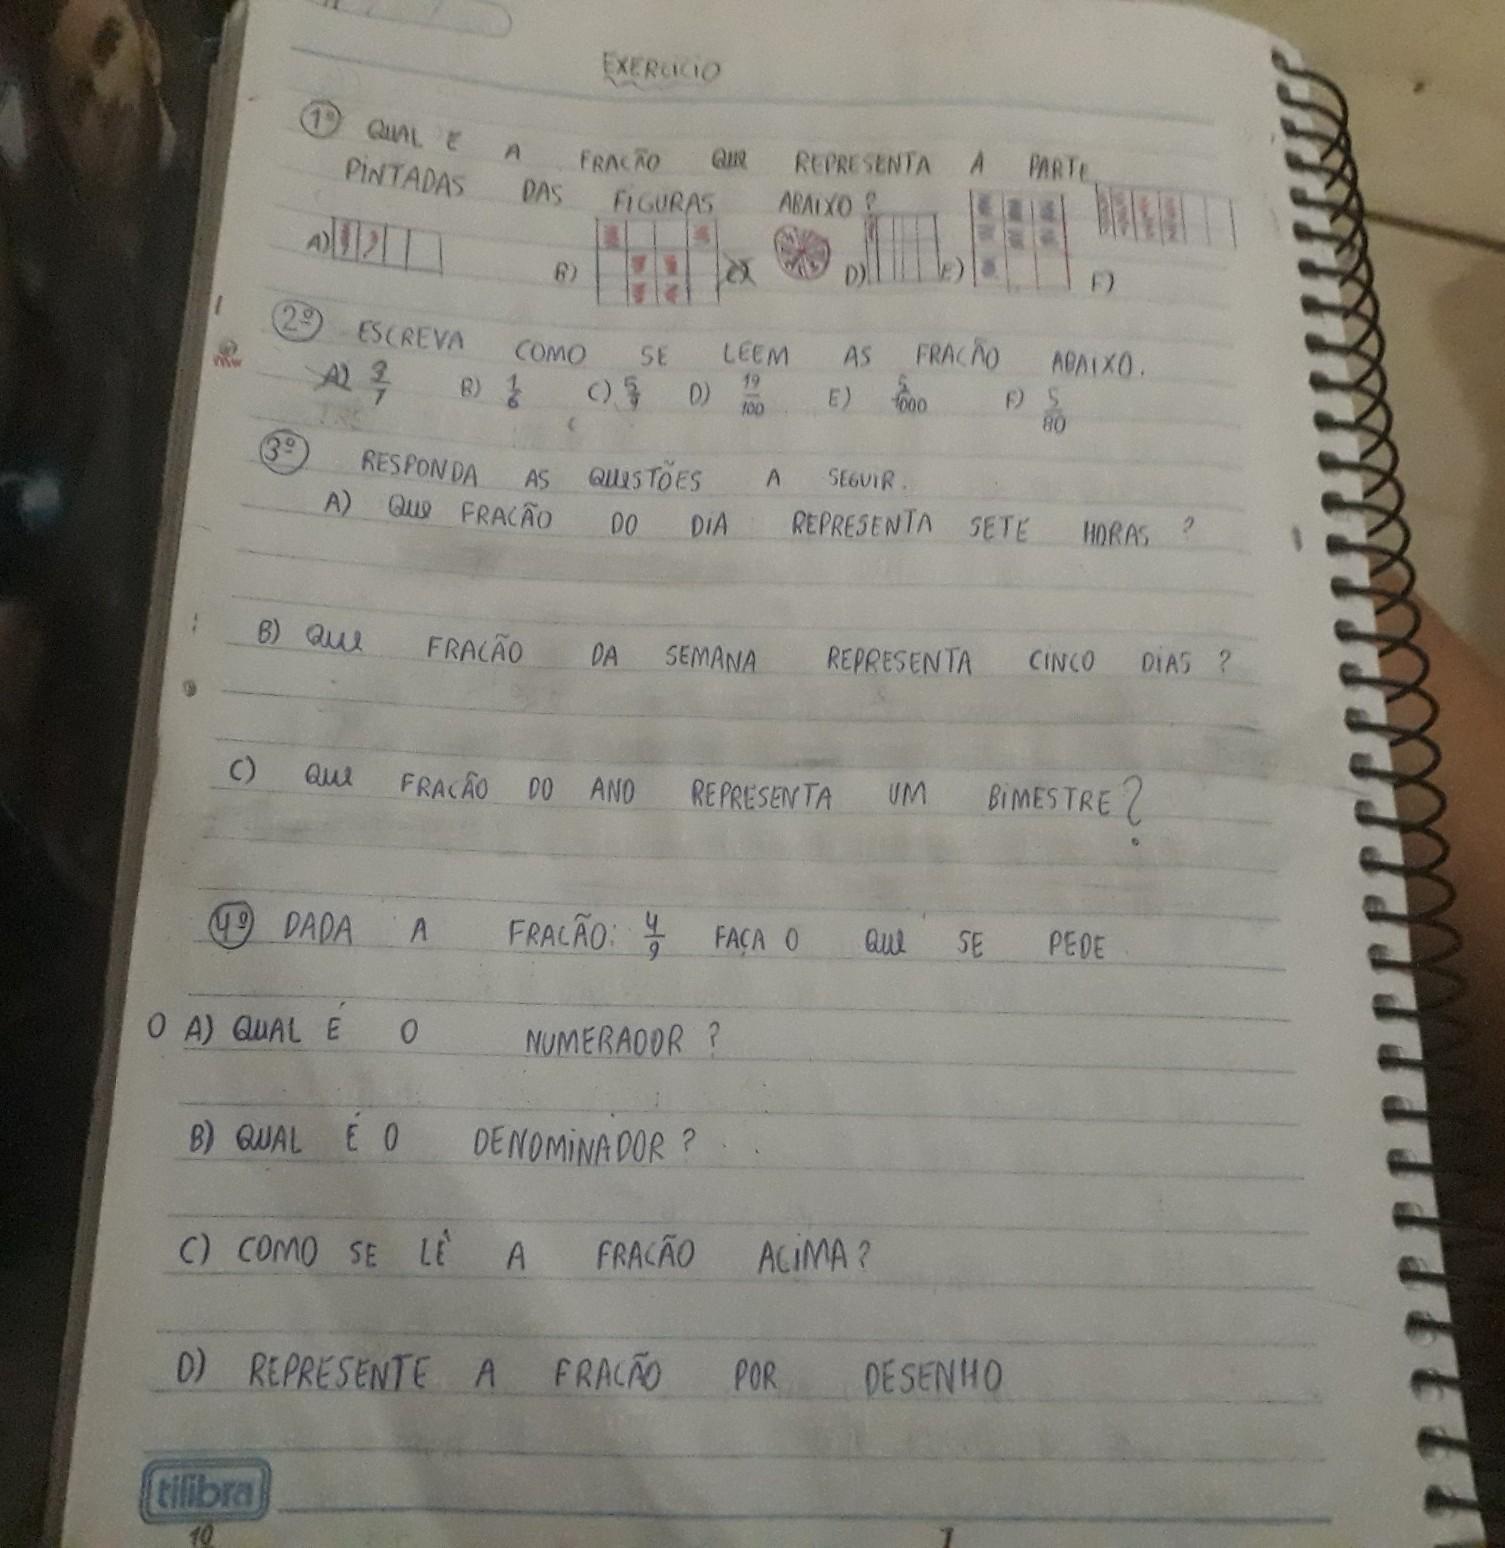 EXERCICIO
1º QUAL E A FRACÃO QUE REPRESENTA A PARTE
PINTADAS DAS FIGURAS ABAIXO?
A) B) C) D) E) F)
2º ESCREVA COMO SE LEEM AS FRACÃO ABAIXO.
B) 1/6 C) 5/9 D) 19/100 E) 5/1000 F) 5/80
3º RESPONDA AS QUESTÕES A SEGUIR.
A) QUE FRACÃO DO DIA REPRESENTA SETE HORAS?
B) QUE FRACÃO DA SEMANA REPRESENTA CINCO DIAS?
C) QUE FRACÃO DO ANO REPRESENTA UM BIMESTRE?
4º DADA A FRACÃO: 4/9 FAÇA O QUE SE PEDE
O A) QUAL É O NUMERADOR?
B) QUAL É O DENOMINADOR?
C) COMO SE LÊ A FRACÃO ACIMA?
D) REPRESENTE A FRACÃO POR DESENHO
tilibra